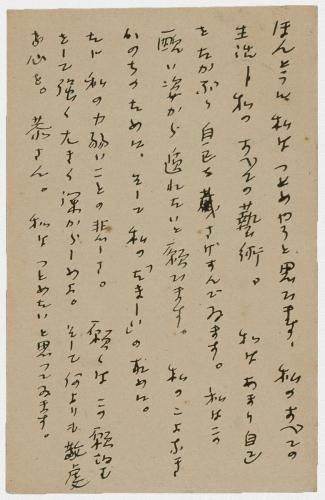 ほんとうに私はつとめやうと思ひます、私のすべての
生活し私のすべての藝術。私はあまり自己
をたかぶり自己を蔵さげすんでゐます。私はこの
醜い姿から逃れたいと願ひます。私のこよなき
いのちのために、そして私の「たましい」の求めに。
たゞ私の力弱いことの悲しき。願くはこの願望を
そして強く大きく深からしめよ。そして何よりも敬虔
な心を。恭さん。私はつとめたいと思つてゐます。